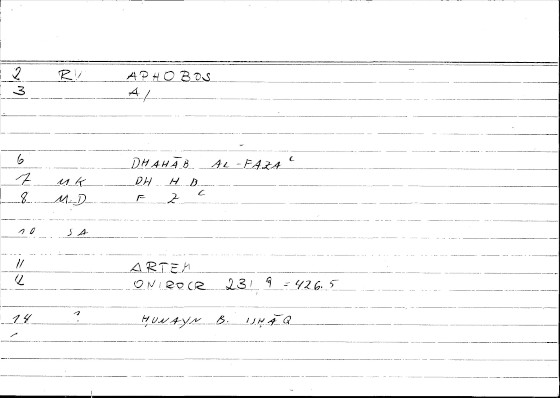 2 RV APHOBOS
3 A/
6 DHAHĀB AL-FAZAʿ
7 MK DH H B
8 MD F Z ʿ
10 SA
11 ARTEM
12 ONIROCR 231 9 = 426.5
14 ? ḤUNAYN B. ISḤĀQ